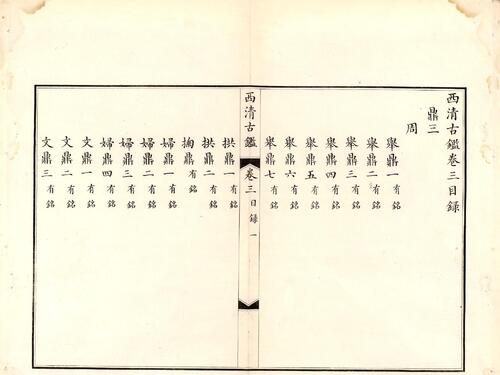 西清古鑑卷三目録
鼎三
周
舉鼎一有銘
舉鼎二有銘
舉鼎三有銘
舉鼎四有銘
舉鼎五有銘
舉鼎六有銘
舉鼎七有銘
西清古鑑
卷三目録
一
拱鼎一有銘
拱鼎二有銘
掬鼎有銘
婦鼎一有銘
婦鼎二有銘
婦鼎三有銘
婦鼎四有銘
文鼎一有銘
文鼎二有銘
文鼎三有銘